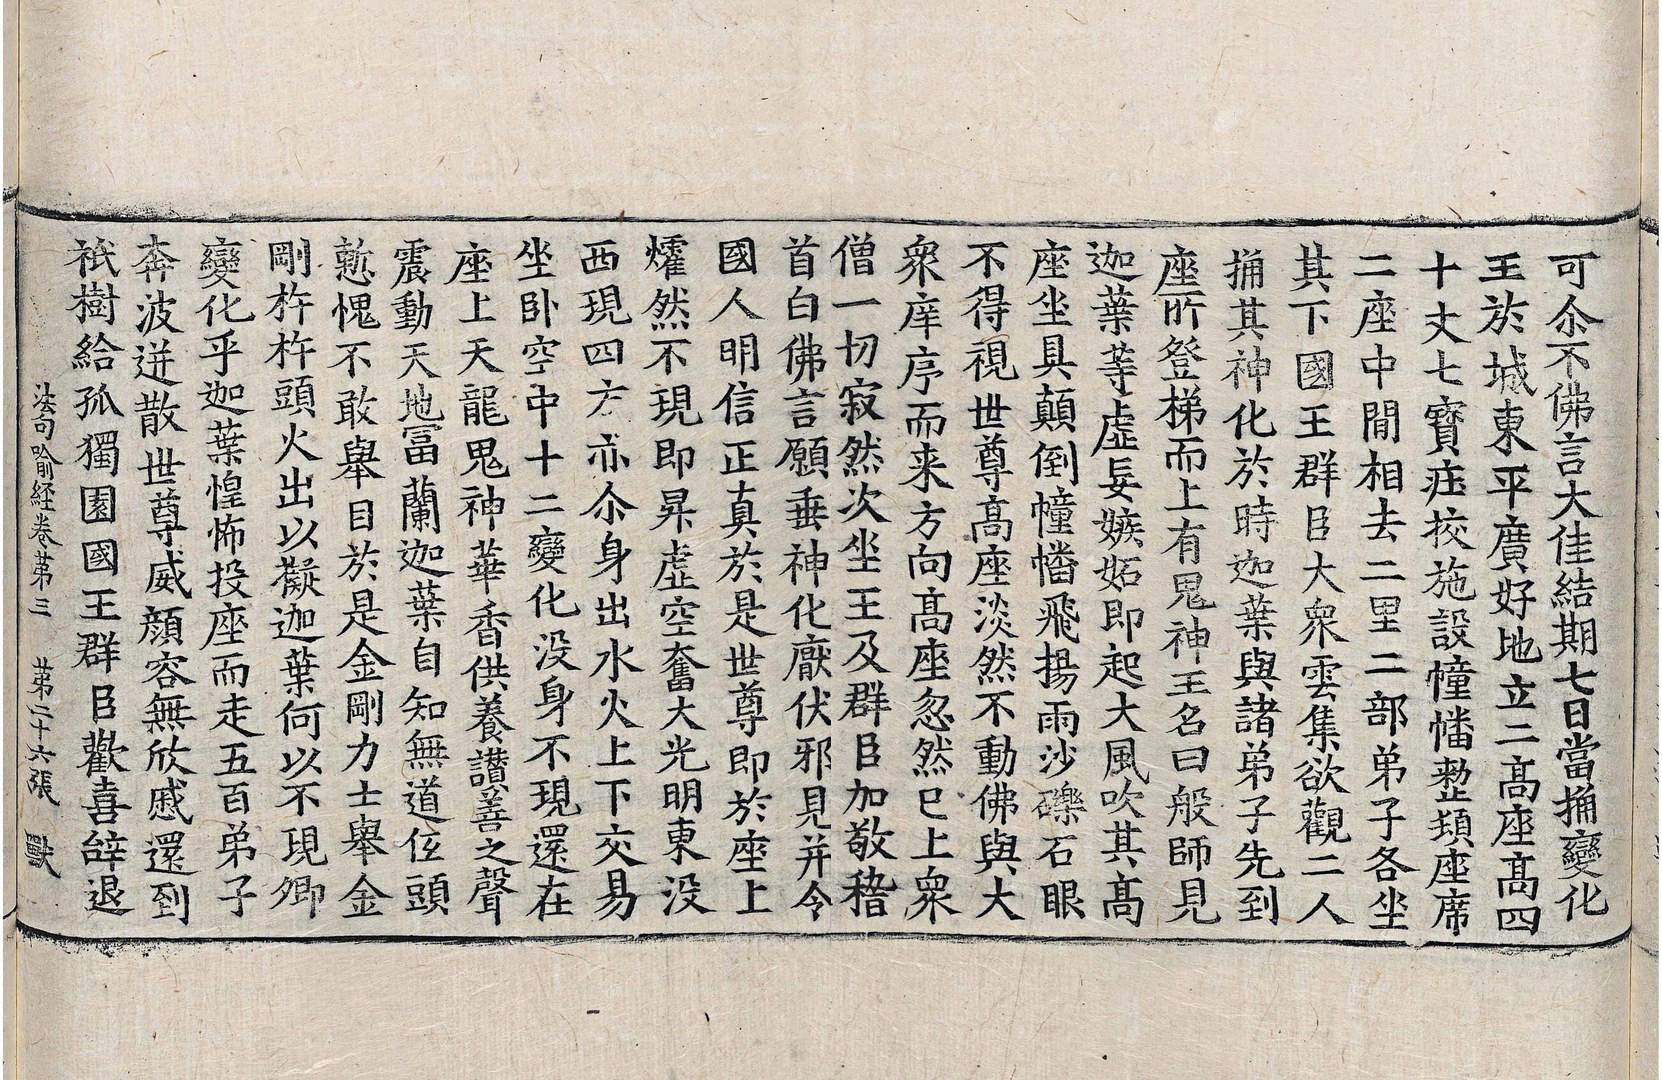 可尒不佛言大佳結期七日當捔變化
王於城東平廣好地立二髙座髙四
十丈七寳莊挍施設幢幡整頓座席
二座中間相去二里二部弟子各坐
其下國王群臣大衆雲集欲觀二人
捔其神化於時迦葉與諸弟子先到
座所登梯而上有鬼神王名曰般師見
迦葉等虛妄嫉妬即起大風吹其髙
座坐具顛倒幢幡飛揚雨沙礫石眼
不得視世尊髙座淡然不動佛與大
衆庠序而来方向髙座忽然已上衆
僧一切寂然次坐王及群臣加敬稽
首白佛言願垂神化厭伏邪見并令
國人明信正真於是世尊即於座上
爗然不現即昇虛空奮大光明東没
西現四方亦尒身出水火上下交易
坐卧空中十二變化没身不現還在
座上天龍鬼神華香供養讃善之聲
震動天地富蘭迦葉自知無道低頭
慙愧不敢舉目於是金剛力士舉金
剛杵杵頭火出以擬迦葉何以不現卿
變化乎迦葉惶怖投座而走五百弟子
奔波迸散世尊威顔容無欣慼還到
祇樹給孤獨園國王群臣歡喜辝退
法句喻経卷第三 第二十六張 獸